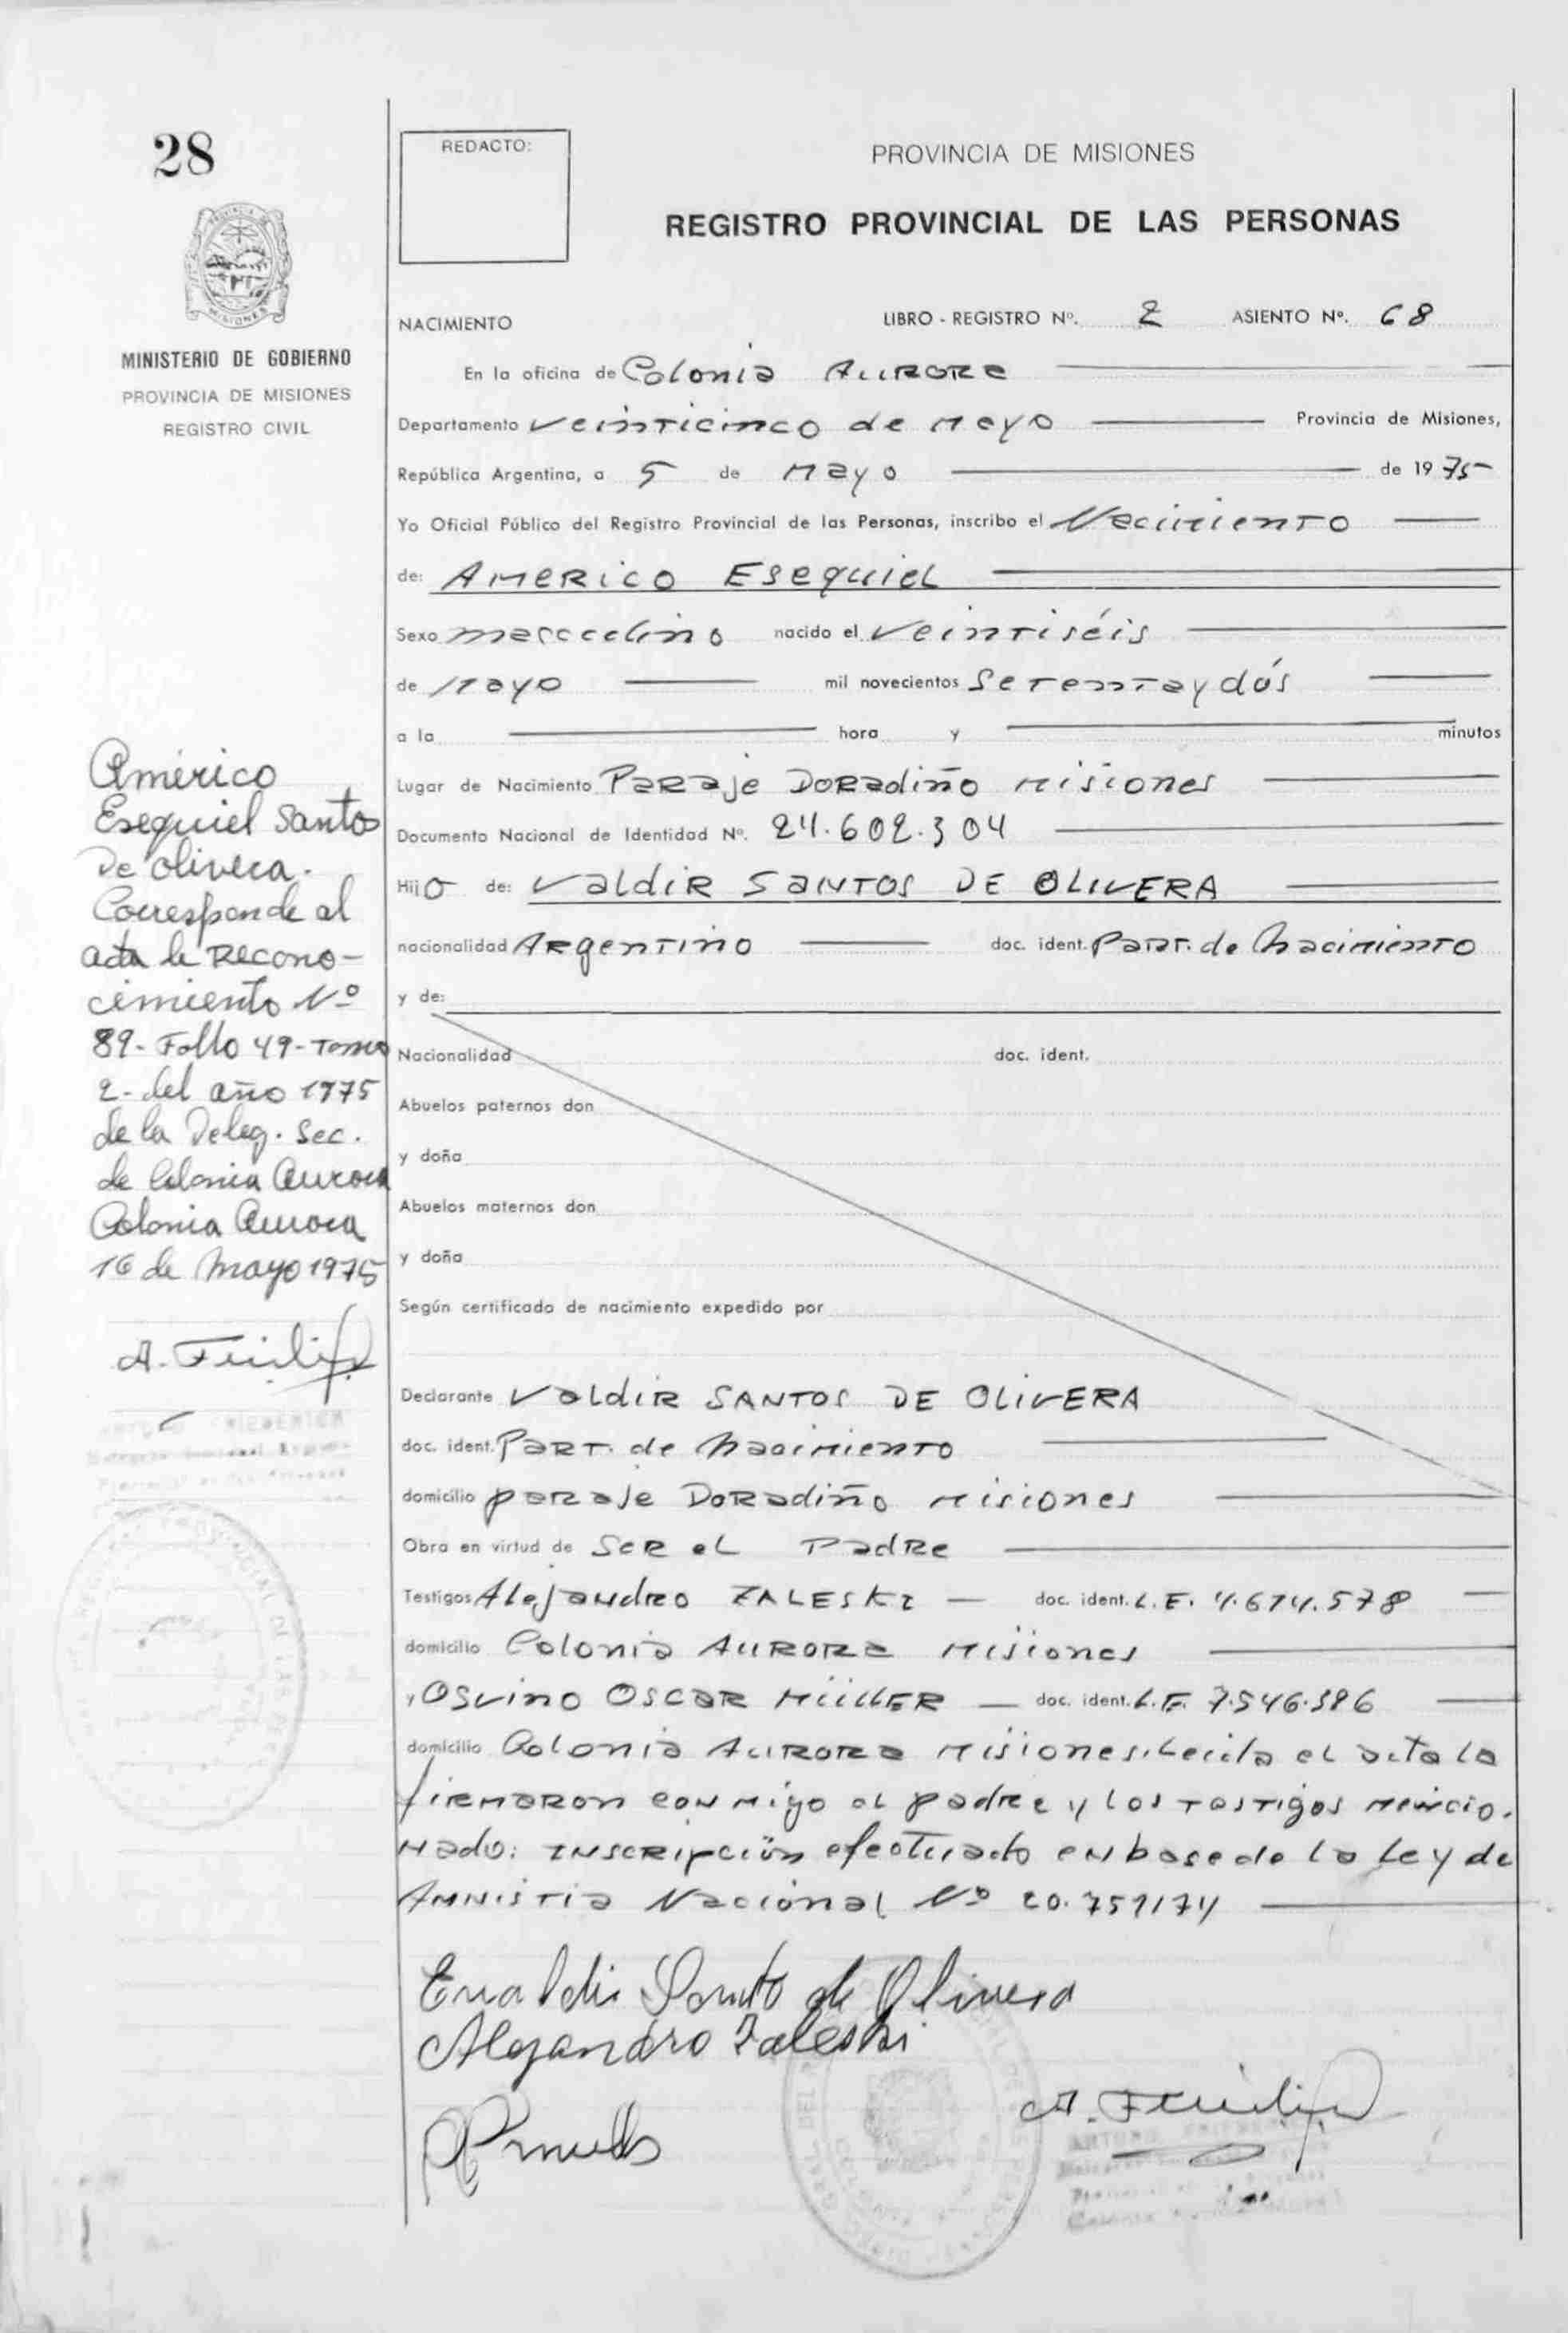 28
MINISTERIO DE GOBIERNO
PROVINCIA DE MISIONES
REGISTRO CIVIL
Américo
Esequiel Santos
De Olivera.
Corresponde al
acta de Recono-
cimiento Nº
89- Folio 49- Tomo
2- del año 1975
de la Deleg. Sec.
de Colonia Aurora
Colonia Aurora
16 de Mayo 1975
REDACTO:
PROVINCIA DE MISIONES
REGISTRO PROVINCIAL DE LAS PERSONAS
NACIMIENTO LIBRO - REGISTRO Nº. 2 ASIENTO Nº. 68
En la oficina de Colonia Aurora
Departamento Veinticinco de Mayo Provincia de Misiones,
República Argentina, a 5 de Mayo de 1975
Yo Oficial Público del Registro Provincial de las Personas, inscribo el Nacimiento
de: AMERICO ESEQUIEL
Sexo masculino nacido el Veintiséis
de Mayo mil novecientos Setenta y dós
a la hora y minutos
Lugar de Nacimiento Paraje Doradiño Misiones
Documento Nacional de Identidad Nº. 24.602.304
Hijo de: Valdir SANTOS DE OLIVERA
nacionalidad Argentino doc. ident. Part. de Nacimiento
y de:
Nacionalidad doc. ident.
Abuelos paternos don
y doña
Abuelos maternos don
y doña
Según certificado de nacimiento expedido por
Declarante Valdir SANTOS DE OLIVERA
doc. ident. Part. de Nacimiento
domicilio paraje Doradiño Misiones
Obra en virtud de Ser el Padre
Testigos Alejandro ZALESKI doc. ident. L.E. 4.674.578
domicilio Colonia Aurora Misiones
y Osvino Oscar MüllER doc. ident. L.E. 7.546.386
domicilio Colonia Aurora Misiones. Leida el acta la
firmaron conmigo el padre y los testigos mencio.
nado: Inscripción efectuado en base de la Ley de
Amnistia Nacional Nº 20.751/74
Evaldir Santo de Olivera
Alejandro Zaleski